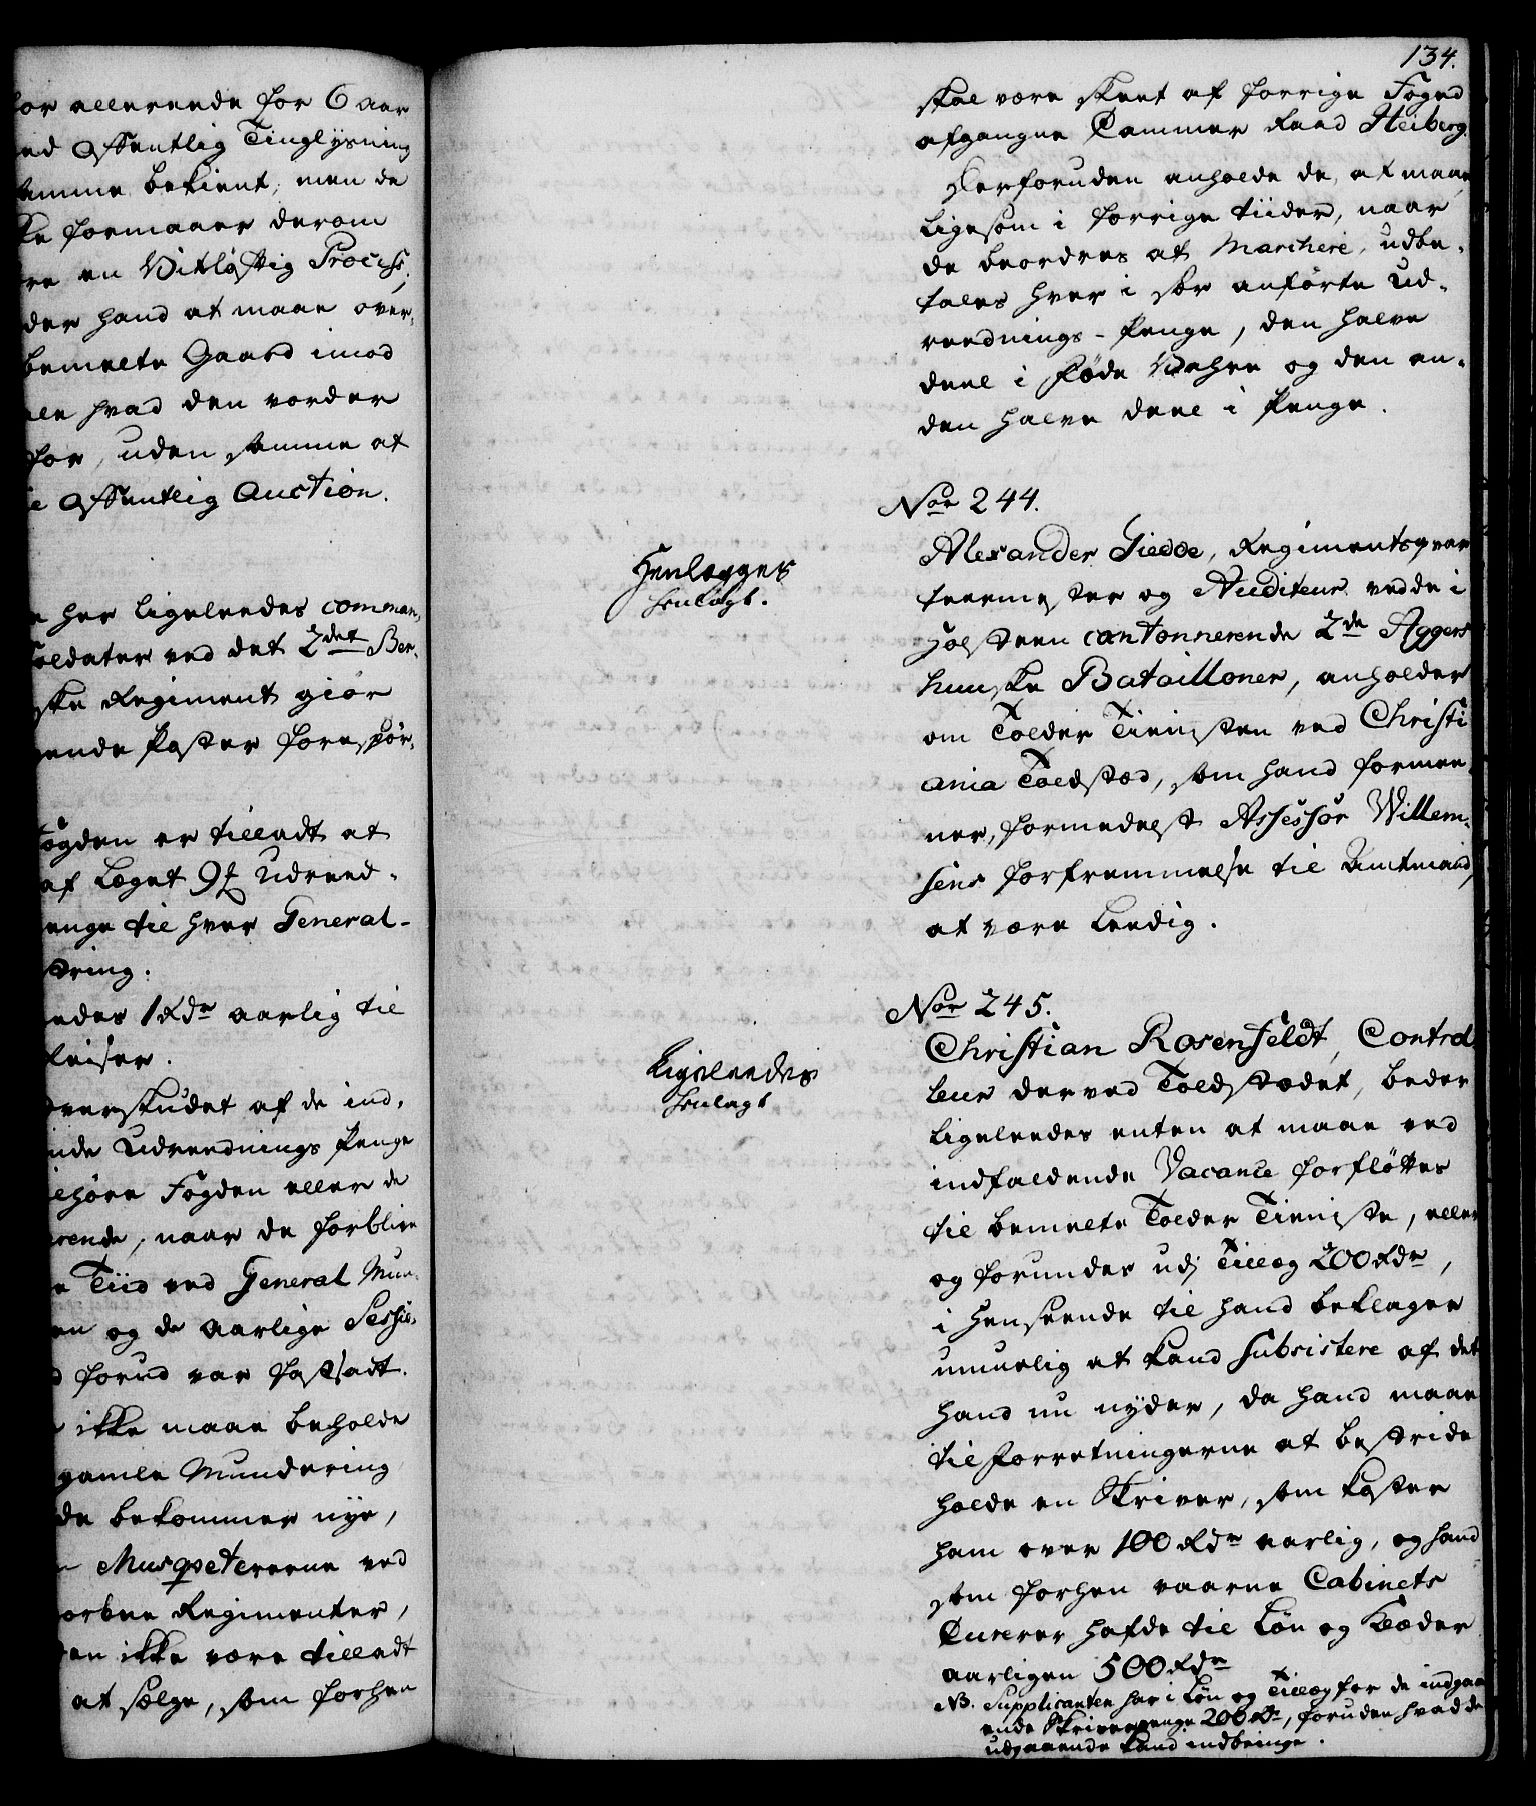 for allereede for 6 aar
ed offentlig Tinglysning
amme bekient, men de
ke formaaer derom
re en Vitløftig Process,
der hand at maae over,
bemelte Gaard imod
ale hvad den vorder
for, uden samme at
e offentlig Auction.
e her ligeleedes comman,
oldater ved det 2det Ber,
ske Regiment giør
ende Poster forespør,
fogden er tilladt at
af Læget 9 Udreed,
enge til hver General-
string.
edes 1 Rdr aarlig til
Reiser.
Overskudet af de ind,
nde Udreednings Penge
ilhøre Fogden eller de
rende, naar de forblive
e Tiid ved General Mun,
en og de aarlige Sessio,
d forud var fastsadt.
ikke maae beholde
gamle Mundering
de bekommer nye,
Musqveterne ved
orbne Regimenter,
en ikke være tilladt
at sælge, som forhen
134.
skal være skeet af forrige Foged
afgangne Cammer Raad Heiberg.
Herforuden anholde de, at maae
ligesom i forrige tiider, naar
de beordres at Marchere, udbe,
tales hver i sær anførte Ud,
reednings-Penge, den halve
deel i Føde Vahre og den an,
den halve deel i Penge.
Nor 244.
Henlegges
henlagt.
Alexander Giedde, Regimentsqvar
teermester og Auditeur ved de i
Holsteen cantonnerende 2de Aggers
huuske Batailloner, anholder
om Tolder Tienisten ved Christi
ania Toldsted, som hand formee,
ner, formedelst Assessor Willem,
sens forfremmelse til Amtmand,
at være Leedig.
Nor 245.
Ligeleedes
henlagt
Christian Rosenfeldt, Control
leur derved Toldstædet, beder
ligeleedes enten at maae ved
indfaldende Vacance forfløttes
til bemelte Tolder Tieniste, eller
og forundes udj Tillæg 200 Rdr,
i henseende til hand beklager
umuelig at kand subsistere af det
hand nu nyder, da hand maae
til forretningerne at bestride
holde en Skriver, som koster
ham over 100 Rdr aarlig, og hand
som forhen værene Cabinets
Curerer hafde til Løn og Klæder
aarligen 500 Rdr
NB. Supplicanten har i Løn og Tillæg for de indgaa
ende Skriverpenge 200 Rdr, foruden hvad de
udgaaende kand indbringe.